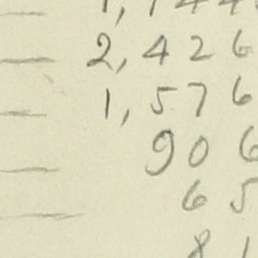 2,426
1,576
906
65
81